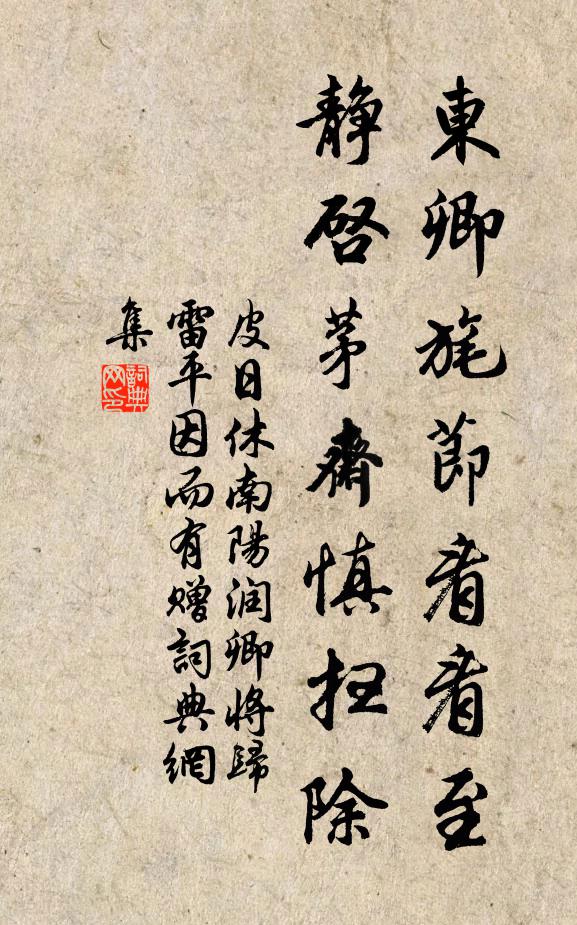 東卿旄節看看至
静啓茅齋慎掃除
皮日休南陽润卿将歸
雷平因而有赠詞典網
集
詞典
网印